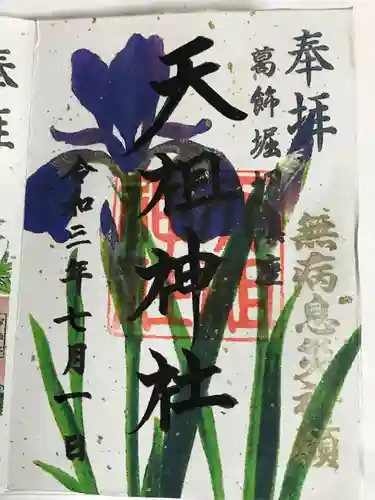 奉拝
無病息災祈願
葛飾堀切鎮座
天祖神社
令和三年七月一日